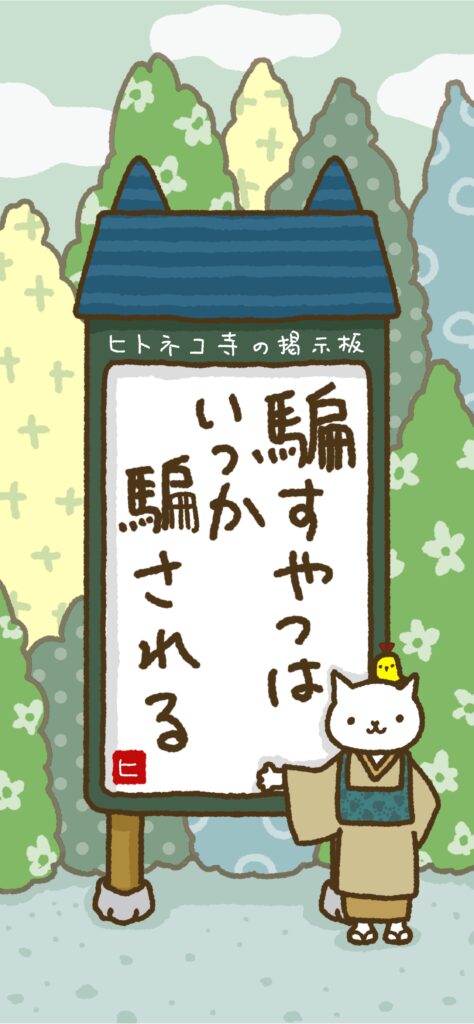 ヒトネコ寺の掲示板
騙すやつは
いつか
騙される
ヒ